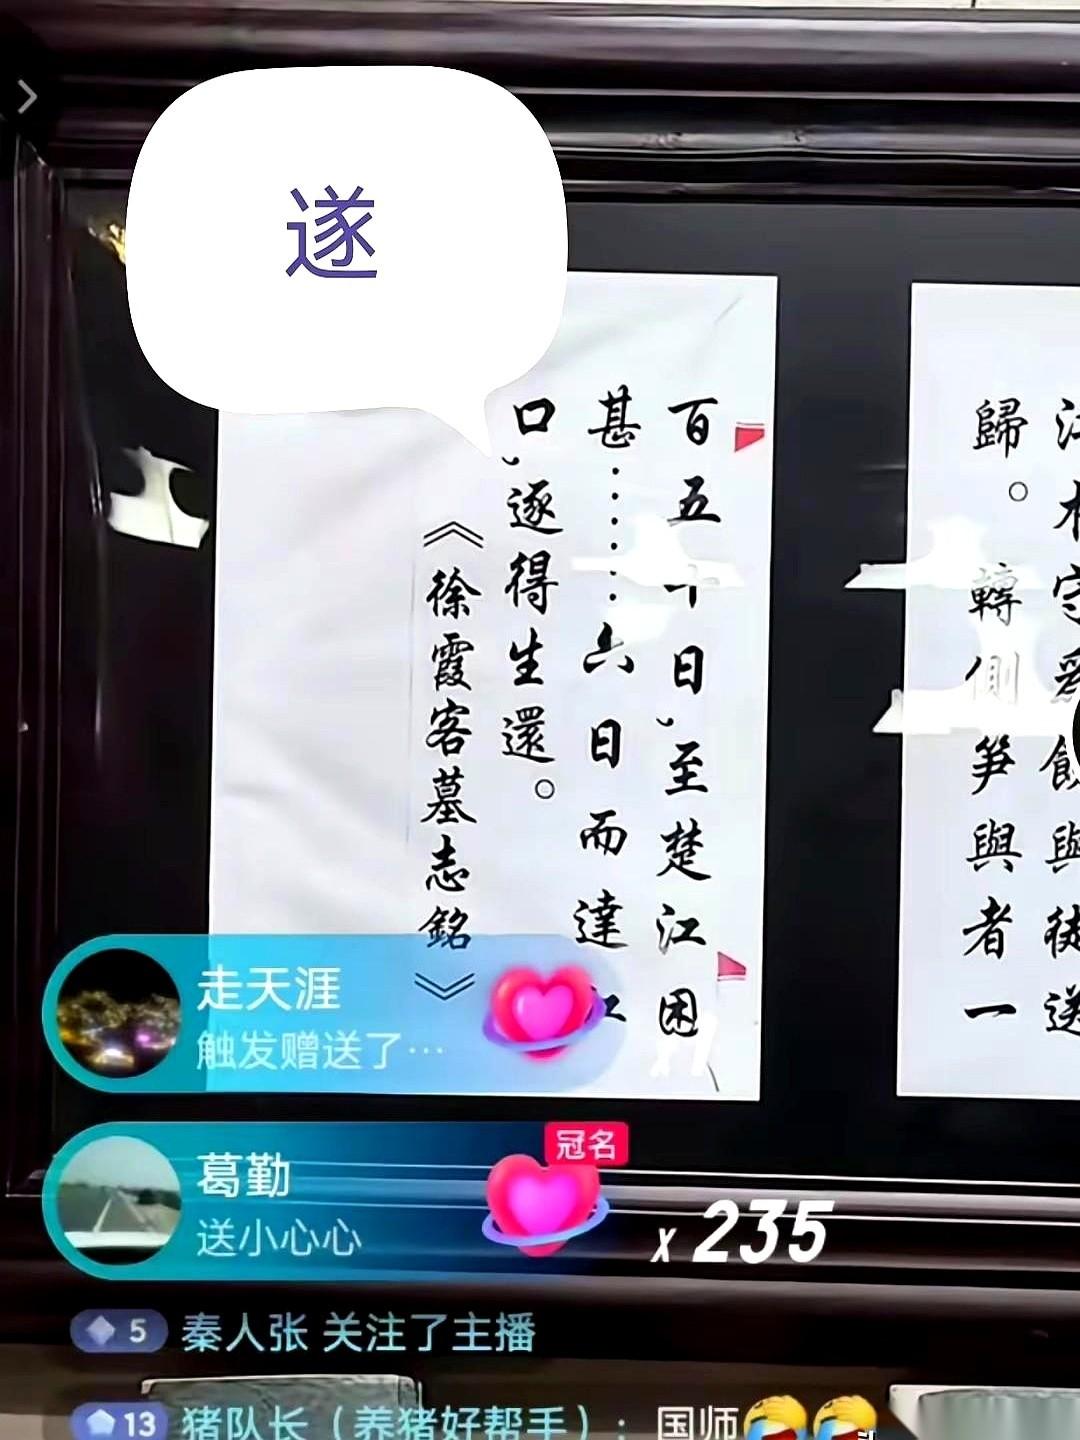 遂
百五十日，至楚江困
甚……六日而達江
口，逐得生還。
《徐霞客墓志銘》
歸。轉側笋與者一
走天涯
触发赠送了…
x1
葛勤
送小心心
冠名
x 235
5 秦人张 关注了主播
13 猪队长（养猪好帮手）：国师